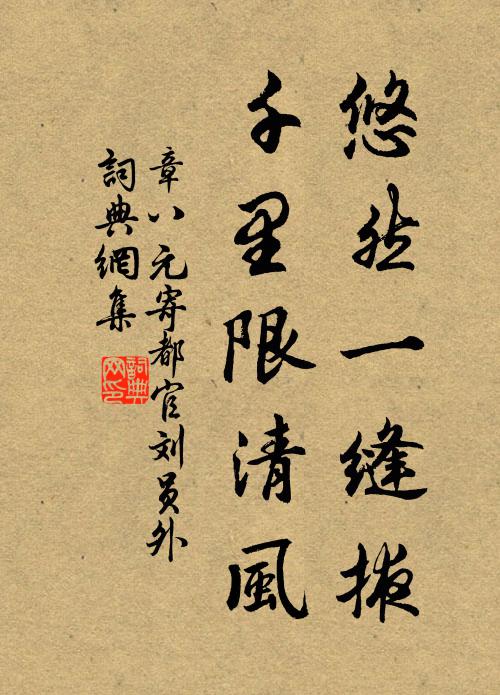 悠然一缝掖
千里限清風
章八元寄都官刘員外
詞典網集
詞典网印